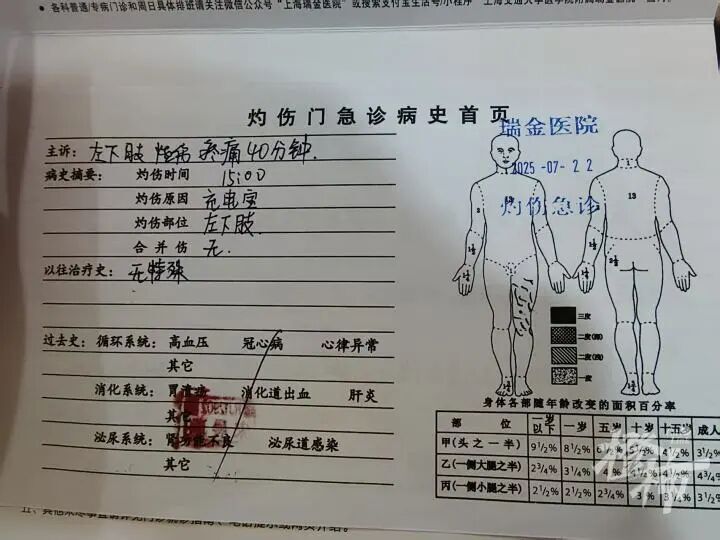 各科普通/专病门诊和周日具体排班请关注微信公众号“上海瑞金医院”或搜索支付宝生活号/小程序“上海交通大学医学院附属瑞金医院”
灼伤门急诊病史首页
瑞金医院
2025-07-22
灼伤急诊
主诉: 左下肢 疼痛 40分钟.
病史摘要: 灼伤时间 15:00
灼伤原因 充电宝
灼伤部位 左下肢.
合并伤 无.
以往治疗史: 无特殊
过去史: 循环系统: 高血压 冠心病 心律异常
其它
消化系统: 胃溃疡 消化道出血 肝炎
其它
泌尿系统: 肾功能不良 泌尿道感染
其它
13
13
三度
二度(深)
二度(浅)
一度
身体各部随年龄改变的面积百分率
部 位 一岁以下 一岁 五岁 十岁 十五岁 成人
甲(头之一半) 9½ 8½ 6½ 5½ 4½ 3½
乙(一侧大腿之半) 2¾ 3¼ 4 4½ 4½ 4¾
丙(一侧小腿之半) 2½ 2½ 2¾ 3 3¼ 3½